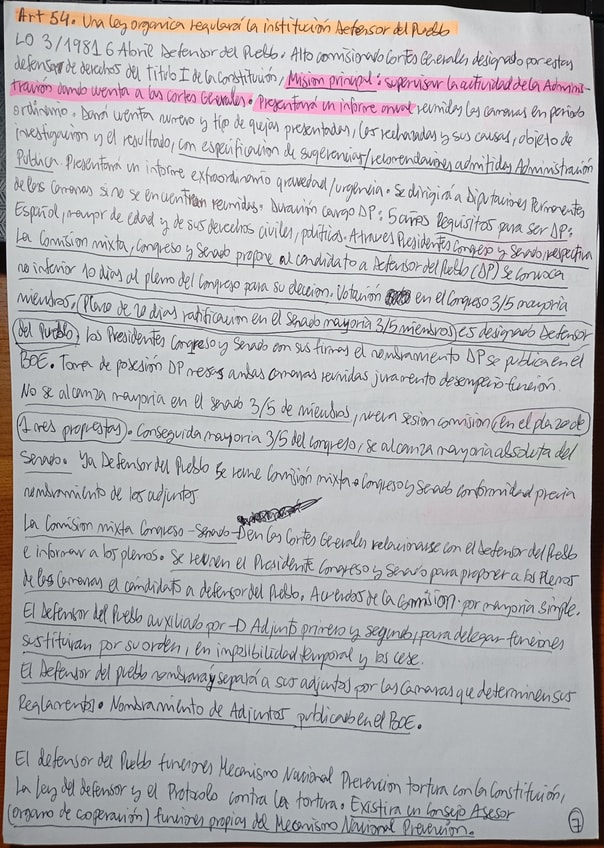 Art 54. Una Ley orgánica regulará la institución Defensor del Pueblo
LO 3/1981 6 Abril Defensor del Pueblo. Alto comisionado Cortes Generales designado por estas
defensor de derechos del título I de la Constitución, Mision principal: supervisar la actividad de la Adminis-
tración dando cuenta a las Cortes Generales. Presentará un informe anual reunidas las camaras en periodo
ordinario. Dará cuenta numero y tipo de quejas presentadas, las rechazadas y sus causas, objeto de
investigacion y el resultado, con especificacion de sugerencias/recomendaciones admitidas Administración
Publica. Presentará un informe extraordinario gravedad/urgencia. Se dirigirá a Diputaciones Permanentes
de las Camaras si no se encuentran reunidas. Duración cargo DP: 5 años Requisitos para ser DP:
Español, mayor de edad y de sus derechos civiles, políticos. A traves Presidentes Congreso y Senado, respectiva
La Comision mixta, Congreso y Senado propone al candidato a Defensor del Pueblo (DP) se convoca
no inferior 10 dias al pleno del Congreso para su eleccion. Votación en el Congreso 3/5 mayoría
miembros. (Plazo de 20 dias ratificacion en el Senado mayoría 3/5 miembros) es designado Defensor
del Pueblo, los Presidentes Congreso y Senado con sus firmas el nombramiento DP se publica en el
BOE. Toma de posesión DP mesas ambas camaras reunidas juramento desempeño función.
No se alcanza mayoria en el senado 3/5 de miembros, nueva sesion comision (en el plazo de
1 mes propuestas). Conseguida mayoria 3/5 del congreso, se alcanza mayoría absoluta del
Senado. Ya Defensor del Pueblo se reune Comisión mixta Congreso y Senado conformidad previa
nombramiento de los adjuntos
La Comision mixta Congreso - Senado en las Cortes Generales relacionarse con el Defensor del Pueblo
e informar a los plenos. Se reunen el Presidente Congreso y Senado para proponer a los Plenos
de las Camaras el candidato a defensor del Pueblo. Acuerdos de la Comisión por mayoría simple.
El Defensor del Pueblo auxiliado por Adjunto primero y segundo, para delegar funciones
sustituiran por su orden, en imposibilidad temporal y los cese.
El Defensor del pueblo nombrará y separá a sus adjuntos por las Camaras que determinen sus
Reglamentos. Nombramiento de Adjuntos publicado en el BOE.
El defensor del Pueblo funciones Mecanismo Nacional Prevencion tortura con la Constitución,
La ley del defensor y el Protocolo contra la tortura. Existira un Consejo Asesor
(organo de cooperación) funciones propias del Mecanismo Nacional Prevención.
7